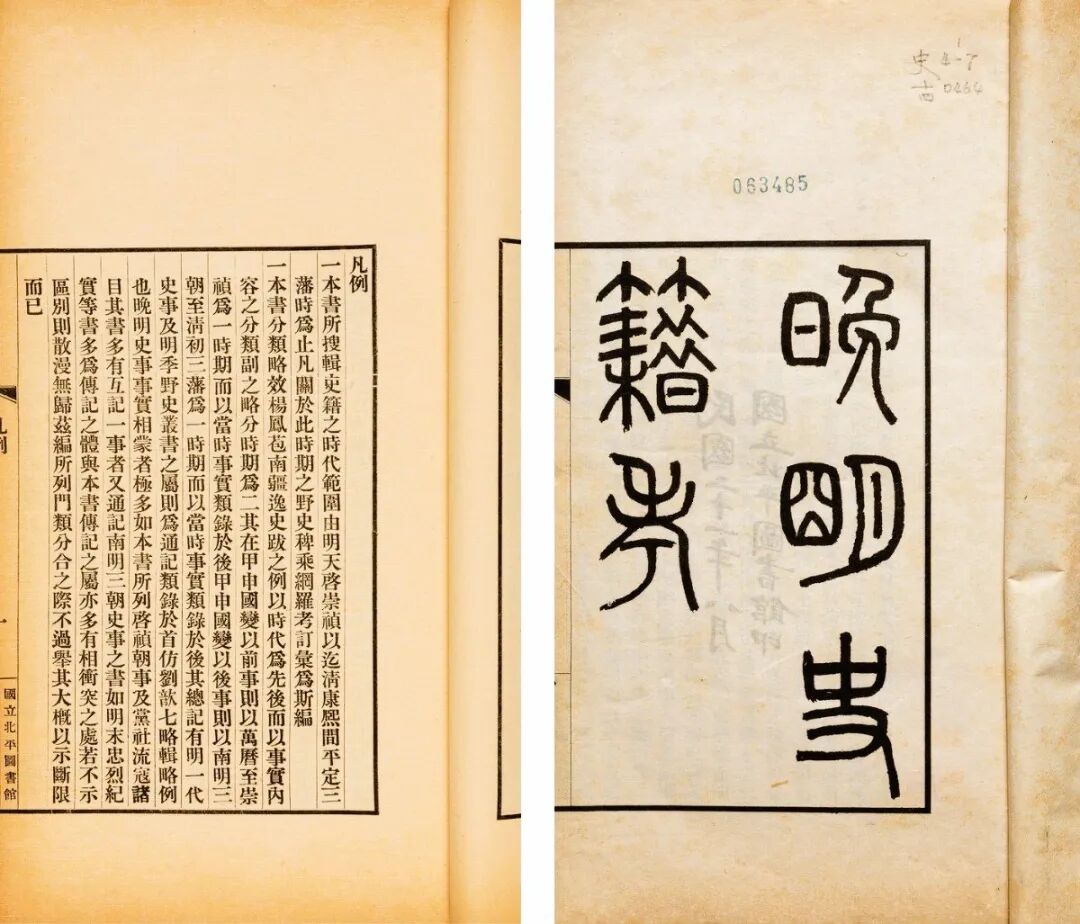 063485
晚明史
籍考
凡例
一本書所搜輯史籍之時代範圍由明天啓崇禎以迄清康熙間平定三
藩時爲止凡關於此時期之野史稗乘網羅考訂彙爲斯編
一本書分類略效楊鳳苞南疆逸史跋之例以時代爲先後而以事實內
容之分類副之略分時期爲二其在甲申國變以前事則以萬曆至崇
禎爲一時期而以當時事實類錄於後甲申國變以後事則以南明三
朝至清初三藩爲一時期而以當時事實類錄於後其總記有明一代
史事及明季野史叢書之屬則爲通記類錄於首仿劉歆七略輯略例
也晚明史事事實相蒙者極多如本書所列啓禎朝事及黨社流寇諸
目其書多有互記一事者又通記南明三朝史事之書如明末忠烈紀
實等書多爲傳記之體與本書傳記之屬亦多有相衝突之處若不示
區別則散漫無歸茲編所列門類分合之際不過舉其大概以示斷限
而已
凡例
一
國立北平圖書館